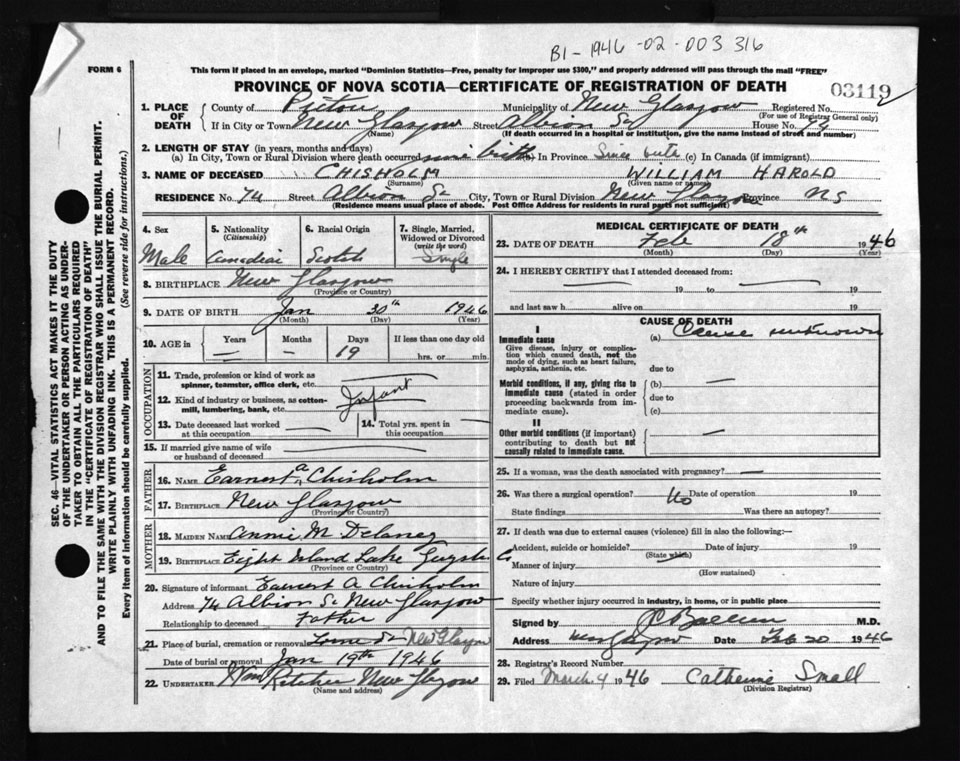 B1-1946-02-003316
FORM 6
This form if placed in an envelope, marked "Dominion Statistics—Free, penalty for improper use $300," and properly addressed will pass through the mail "FREE"
PROVINCE OF NOVA SCOTIA—CERTIFICATE OF REGISTRATION OF DEATH
03119
1. PLACE OF DEATH County of Pictou Municipality of New Glasgow Registered No.
(For use of Registrar General only)
If in City or Town New Glasgow Street Albion St House No. 74
(If death occurred in a hospital or institution, give the name instead of street and number)
2. LENGTH OF STAY (in years, months and days)
(a) In City, Town or Rural Division where death occurred since birth (b) In Province Since birth (c) In Canada (if immigrant)
3. NAME OF DECEASED CHISHOLM WILLIAM HAROLD
(Surname) (Given name or names)
RESIDENCE No. 74 Street Albion St City, Town or Rural Division New Glasgow Province NS
(Residence means usual place of abode. Post Office Address for residents in rural parts not sufficient)
SEC. 46—VITAL STATISTICS ACT MAKES IT THE DUTY
OF THE UNDERTAKER OR PERSON ACTING AS UNDER-
TAKER TO OBTAIN ALL THE PARTICULARS REQUIRED
IN THE "CERTIFICATE OF REGISTRATION OF DEATH"
AND TO FILE THE SAME WITH THE DIVISION REGISTRAR WHO SHALL ISSUE THE BURIAL PERMIT.
WRITE PLAINLY WITH UNFADING INK. THIS IS A PERMANENT RECORD.
Every item of information should be carefully supplied. (See reverse side for instructions.)
4. Sex 5. Nationality (Citizenship) 6. Racial Origin 7. Single, Married, Widowed or Divorced (write the word)
Male Canadian Scotch Single
8. BIRTHPLACE New Glasgow
(Province or Country)
9. DATE OF BIRTH Jan 30th 1946
(Month) (Day) (Year)
10. AGE in Years Months Days If less than one day old
— — 19 hrs. or min.
OCCUPATION
11. Trade, profession or kind of work as spinner, teamster, office clerk, etc.
12. Kind of industry or business, as cotton-mill, lumbering, bank, etc. Infant
13. Date deceased last worked at this occupation 14. Total yrs. spent in this occupation
15. If married give name of wife or husband of deceased
FATHER
16. NAME Earnest A Chisholm
17. BIRTHPLACE New Glasgow
(Province or Country)
MOTHER
18. MAIDEN NAME Annie M Delaney
19. BIRTHPLACE Eight Island Lake Guysb Co
(Province or Country)
20. Signature of informant Earnest A Chisholm
Address 74 Albion St New Glasgow
Relationship to deceased Father
21. Place of burial, cremation or removal Lorne St New Glasgow
Date of burial or removal Jan 19th 1946
22. UNDERTAKER Wm Ritchie New Glasgow
(Name and address)
MEDICAL CERTIFICATE OF DEATH
23. DATE OF DEATH Feb 18th 1946
(Month) (Day) (Year)
24. I HEREBY CERTIFY that I attended deceased from:
19 to 19
and last saw h alive on 19
CAUSE OF DEATH
I
Immediate cause (a) Cause unknown
Give disease, injury or complication which caused death, not the mode of dying, such as heart failure, asphyxia, asthenia, etc.
due to
Morbid conditions, if any, giving rise to immediate cause (stated in order proceeding backwards from immediate cause). (b) —
due to
(c)
II
Other morbid conditions (if important) contributing to death but not causally related to immediate cause. —
25. If a woman, was the death associated with pregnancy? —
26. Was there a surgical operation? No Date of operation 19
State findings Was there an autopsy?
27. If death was due to external causes (violence) fill in also the following:—
Accident, suicide or homicide? Date of injury 19
(State which)
Manner of injury
(How sustained)
Nature of injury
Specify whether injury occurred in industry, in home, or in public place
Signed by M.D.
Address New Glasgow Date Feb 20 1946
28. Registrar's Record Number
29. Filed March 4 1946 Catherine Small
(Division Registrar)